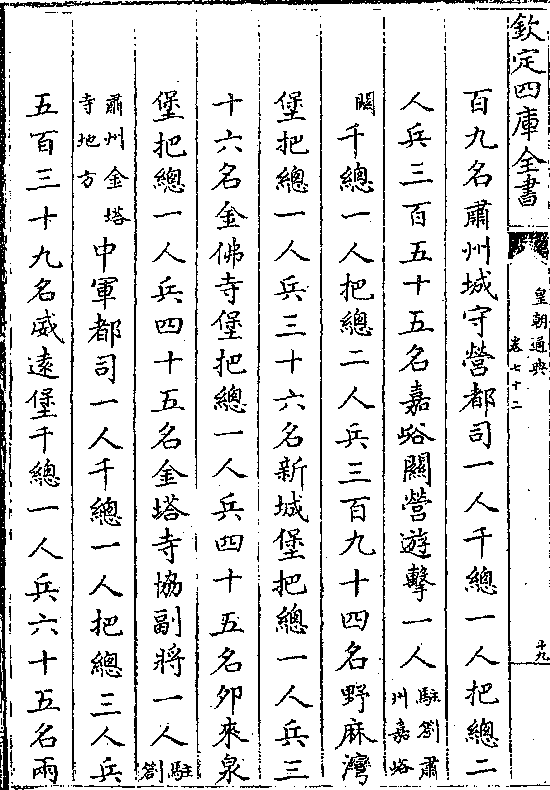 欽定四庫全書
皇朝通典
卷七十二
十九
百九名肅州城守營都司一人千總一人把總二
人兵三百五十五名嘉峪關營遊擊一人駐劄肅州嘉峪
關千總一人把總二人兵三百九十四名野麻灣
堡把總一人兵三十六名新城堡把總一人兵三
十六名金佛寺堡把總一人兵四十五名卯來泉
堡把總一人兵四十五名金塔寺協副將一人駐劄
肅州金塔寺地方中軍都司一人千總一人把總三人兵
五百三十九名威遠堡千總一人兵六十五名兩